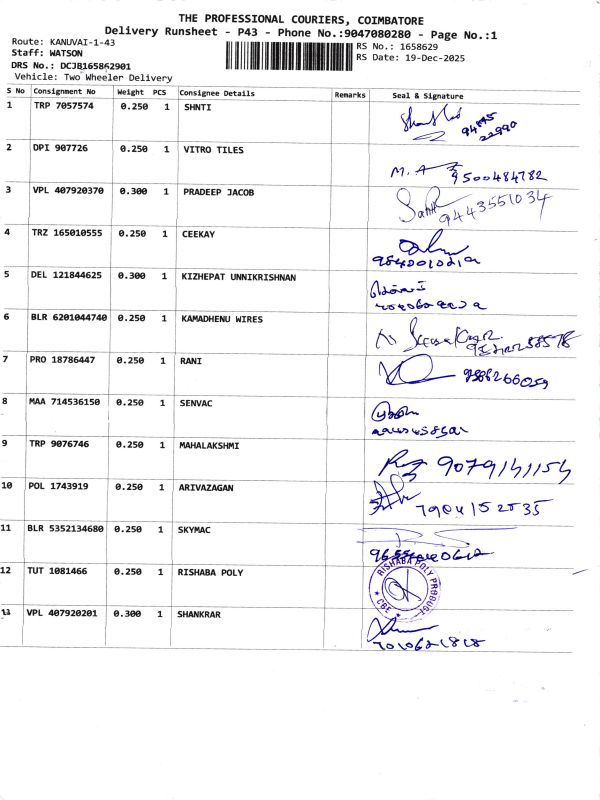 THE PROFESSIONAL COURIERS, COIMBATORE
Delivery Runsheet - P43 - Phone No.:9047080280 - Page No.:1
Route: KANUVAI-1-43
RS No.: 1658629
Staff: WATSON
RS Date: 19-Dec-2025
DRS No.: DCJB165862901
Vehicle: Two Wheeler Delivery
S No Consignment No Weight PCS Consignee Details Remarks Seal & Signature
1 TRP 7057574 0.250 1 SHNTI
2 DPI 907726 0.250 1 VITRO TILES
9500484782
3 VPL 407920370 0.300 1 PRADEEP JACOB
9443551034
4 TRZ 165010555 0.250 1 CEEKAY
5 DEL 121844625 0.300 1 KIZHEPAT UNNIKRISHNAN
6 BLR 6201044740 0.250 1 KAMADHENU WIRES
7 PRO 18786447 0.250 1 RANI
8 MAA 714536150 0.250 1 SENVAC
9 TRP 9076746 0.250 1 MAHALAKSHMI
10 POL 1743919 0.250 1 ARIVAZAGAN
7904152535
11 BLR 5352134680 0.250 1 SKYMAC
12 TUT 1081466 0.250 1 RISHABA POLY
RISHABA POLY PRODUCE
★ CBE ★
13 VPL 407920201 0.300 1 SHANKRAR
7010621818